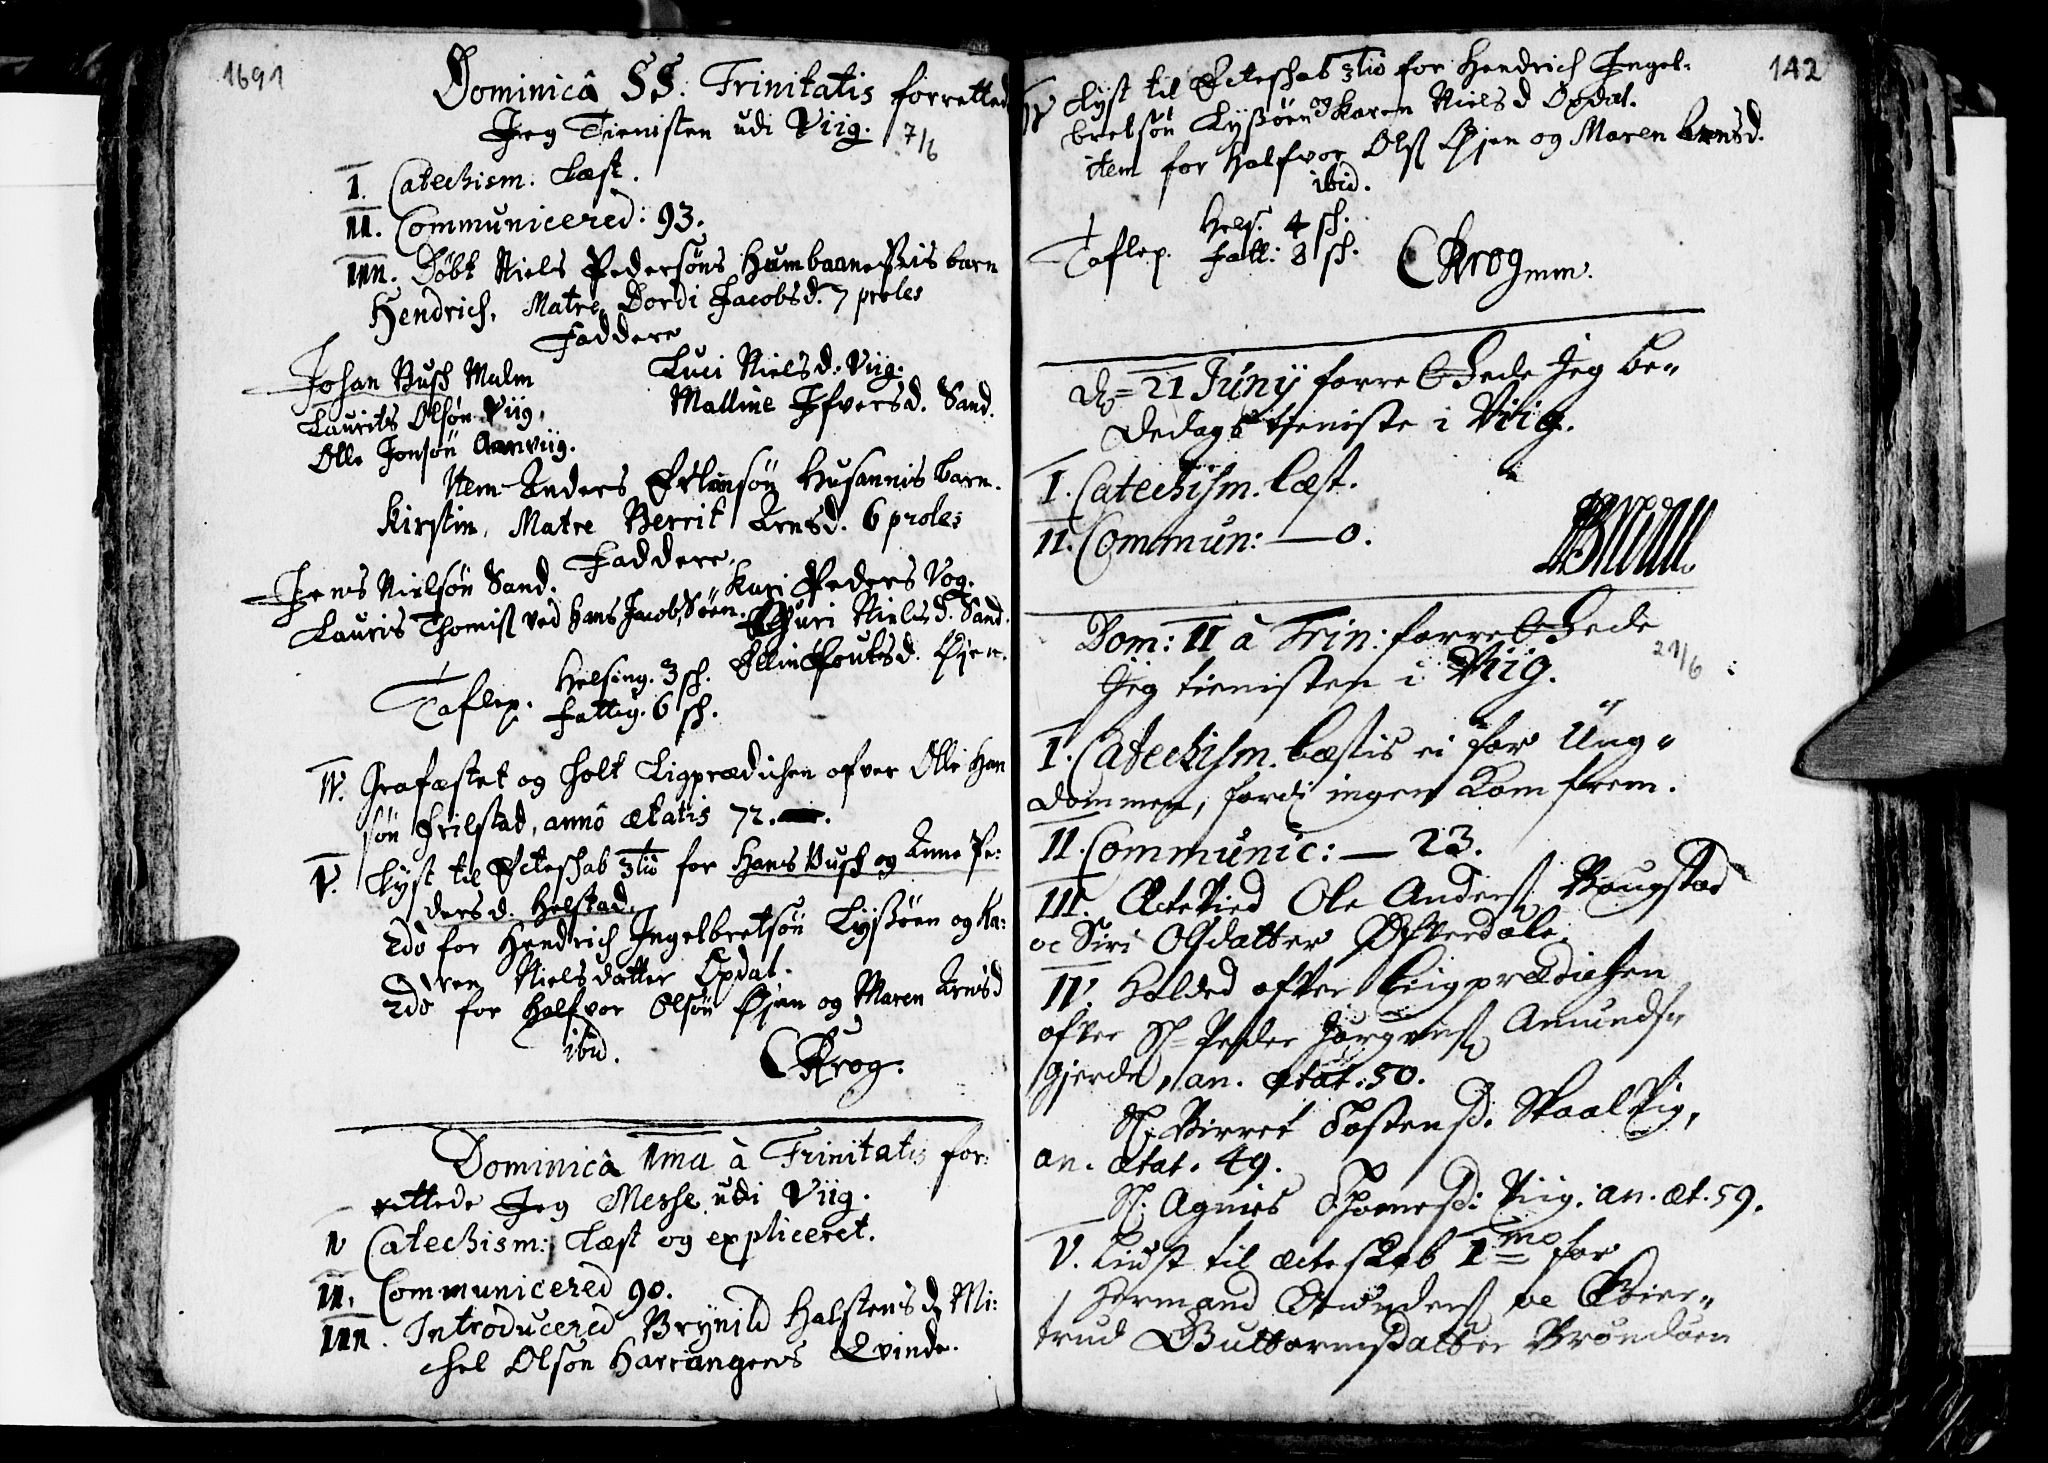 1691
Dominicâ SS. Trinitatis forretted
Jeg Tienisten udi Viig. 7/6
I. Catechism. Læst.
II. Communicered: 93.
III. Döbt Niels Pedersöns Humbaanessis barn
Hendrich, Matre Dordi Jacobsd. 7 proles
Faddere
Johan Bush Malm
Laurits Olsön Viig,
Olle Jonsön Aarviig.
Luci Nielsd. Viig.
Malline Ifversd. Sand.
Item Anders Erlansön Husannis barn.
Kirstin, Matre Berrit Arnsd. 6 proles
Faddere.
Jens Nielsön Sand.
Lauris Thomiss ved Hans Jacobsöen.
Kari Peders Vog.
Guri Nielsd. Sand.
Ellin Poulsd. Öjen.
Taflep. Helsing. 3 sh.
Fattig. 6 sh.
IV. Grafæstet og holt Ligprædichen ofver Olle Han
sön Frilstad, annô ætatis 72.
V. Lyst til Ecteskab 3tiô for Hans Bush og Anne Pe:
dersd. Helstad.
2dô for Hendrich Ingelbretsön Lyssöen og Ka:
ren Nielsdatter Opdal.
2dô for Halfvor Olsön Öjen og Maren Arnsd
ibid.
CKrog.
Dominicâ 1ma à Trinitatis for:
rettede Jeg Messe udi Viig.
I. Catechism: Læst og expliceret.
II. Communicered 90.
III. Introducered Brynild Halstensd. Mi:
chel Olsön Harrangens Qvinde.
142
IV Lyst til Ecteskab 3tiô for Hendrich Ingel:
bretsön Lyssöen og Karen Nielsd Opdal.
item for Halfvor Olss Öjen og Maren Arnsd.
ibid.
Taflep. Hels. 4 sh.
Fatt: 8 sh.
CKrog mm.
Dn = 21 Junij forrettede Jeg be„
dedags tieniste i Viig.
I. Catechism. læst.
II. Commun: — 0.
Dom: II à Trin: forrettede
Jeg tienisten i Viig. 21/6
I. Catechism. læstis ei for Ung„
dommen, fordi ingen kom frem.
II. Communic: — 23.
III. Ectevied Ole Anderss Baugstad
oc Siri Olsdatter Öfverdale.
IV. Holded efter Liigprædichen
ofver Sl= Peder Jörgenss Amunds„
gjerde, an. ætat. 50.
Sl. Birret Tostensd. Skaalviig,
an. ætat. 49.
Sl. Agnies Thomesd: Viig. an. æt. 59.
V. Liust til ecteskab 1mo for
Hermand Amunderss oc Gier„
trud Guttormsdatter Bröndöen